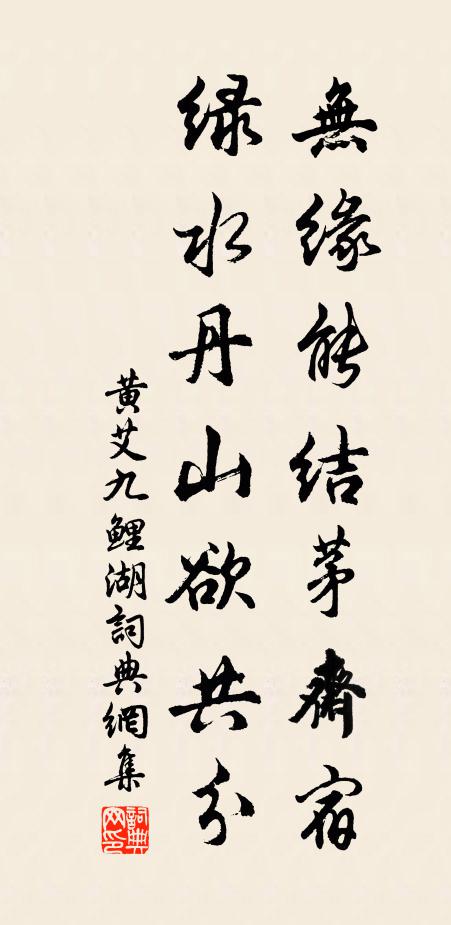 無緣能結茅齋宿
綠水丹山欲共分
黄艾九鯉湖詞典網集
詞典網印